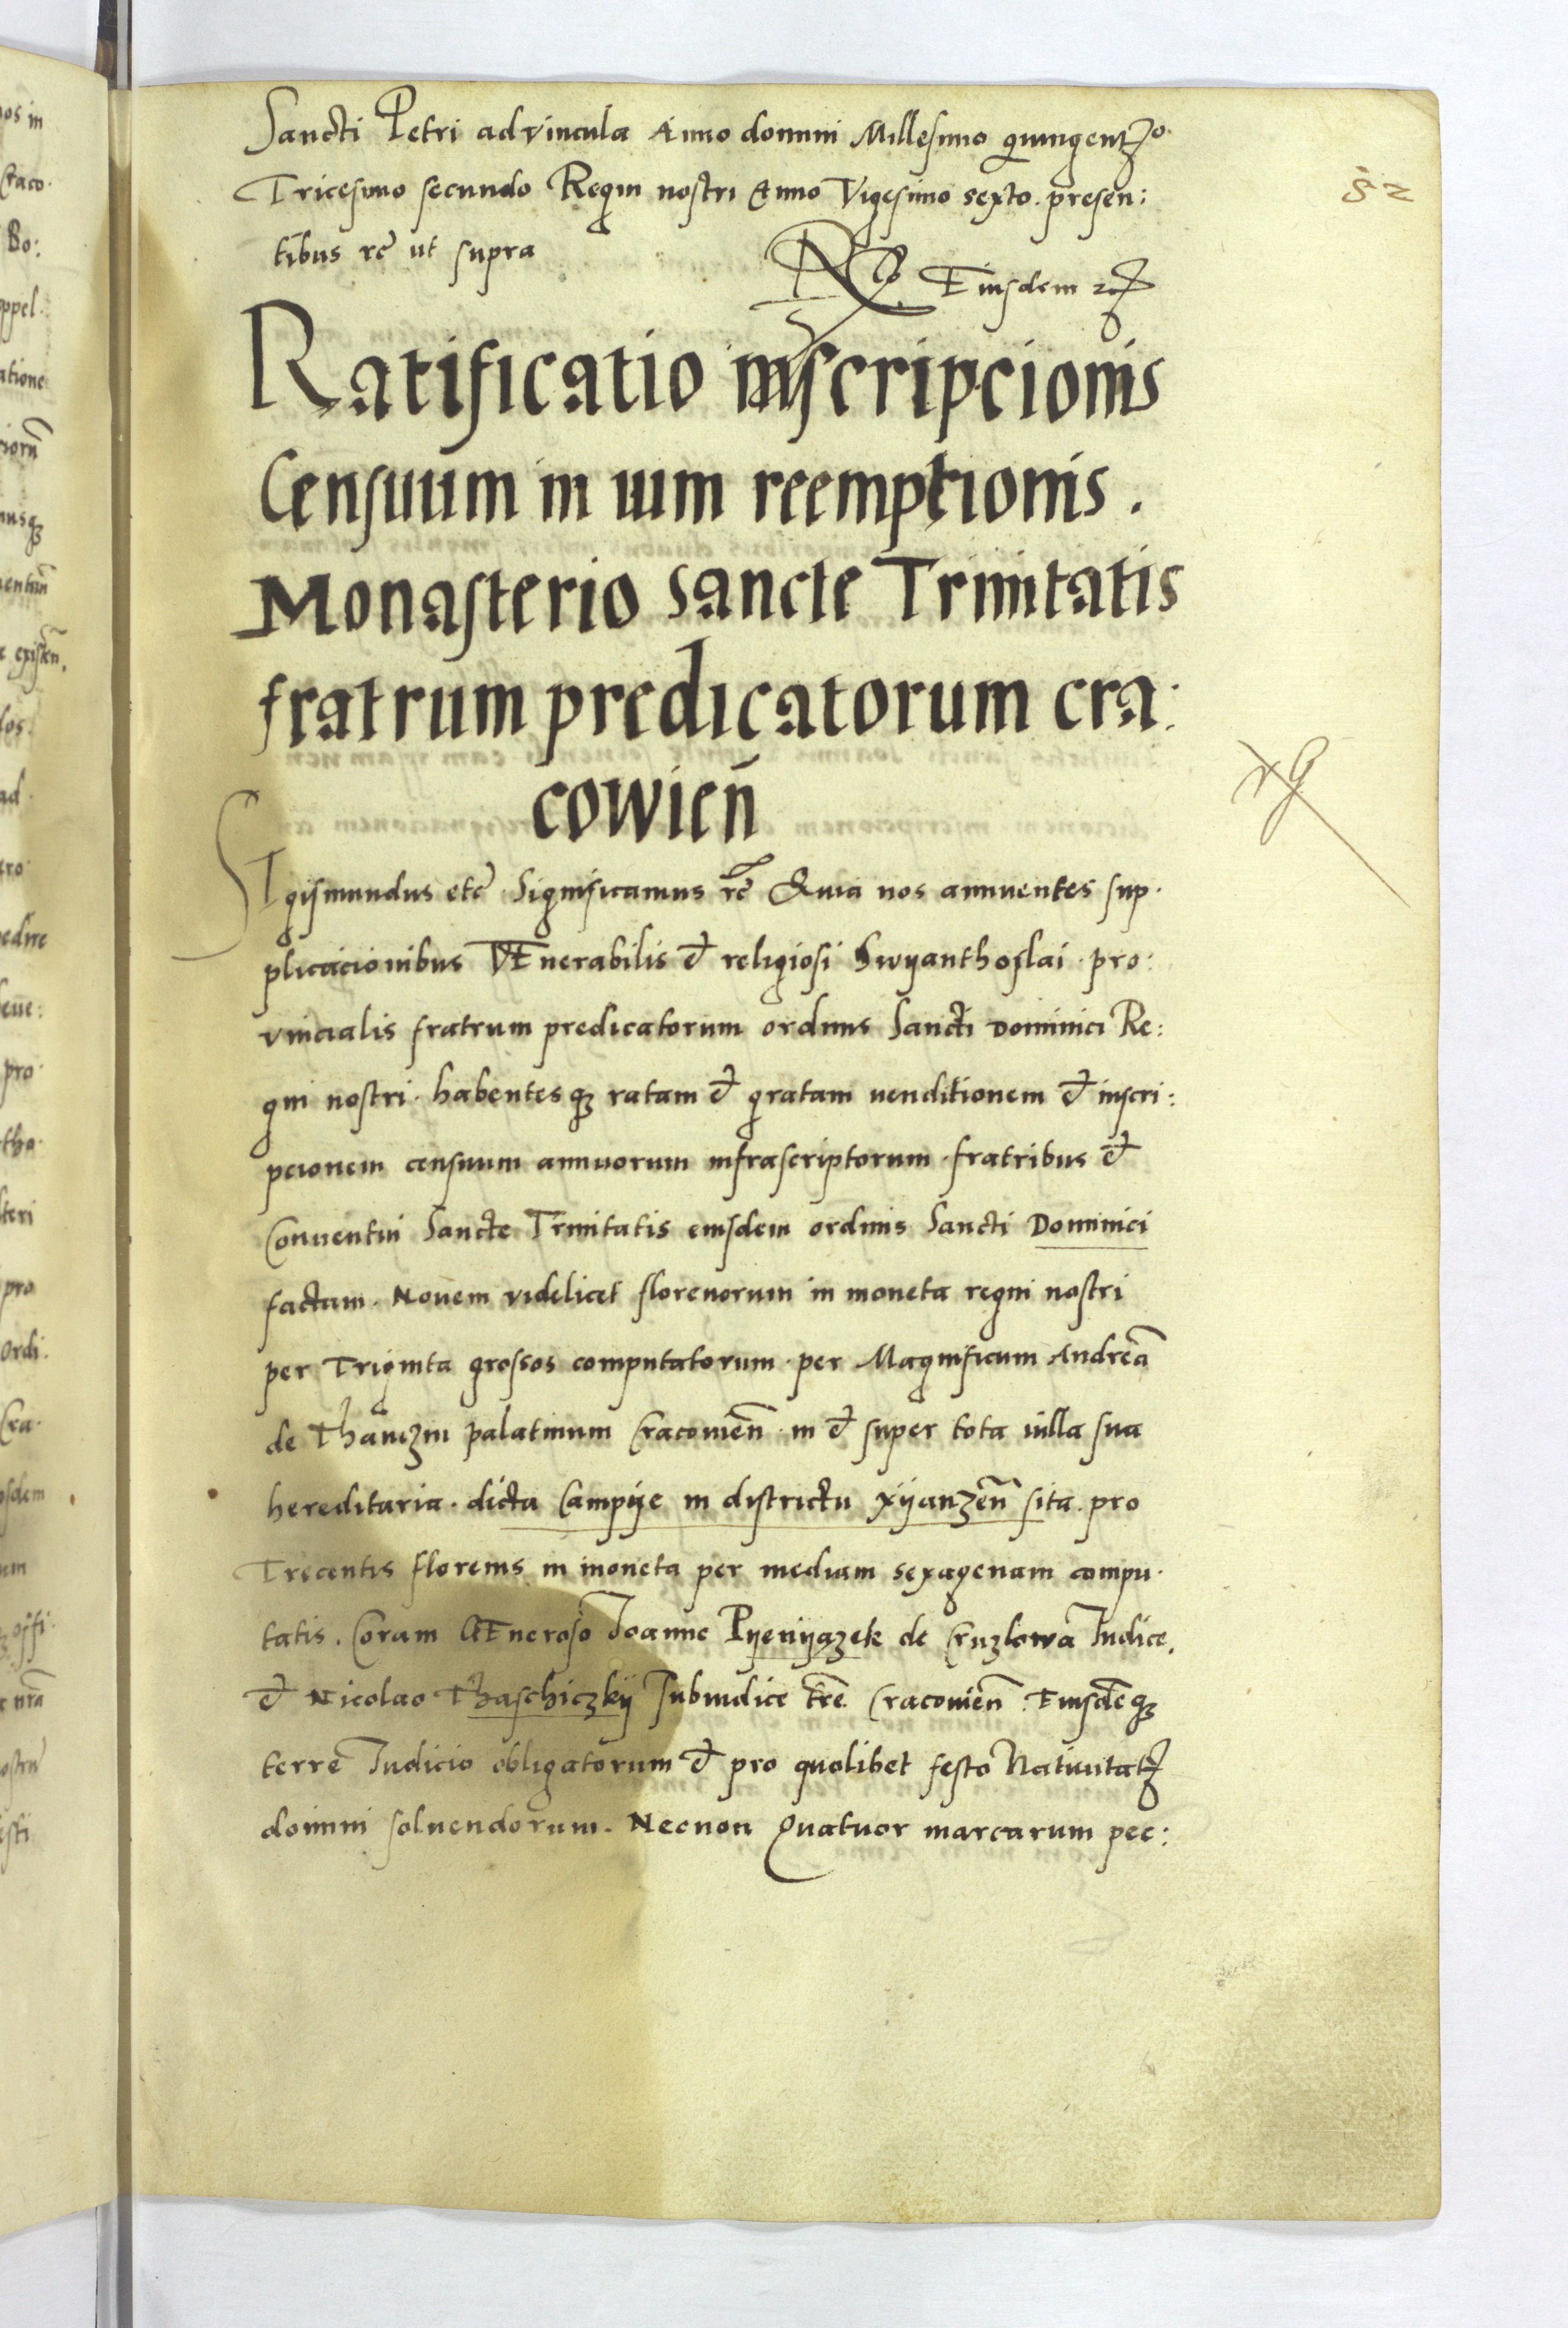 Sancti Petri ad vincula Anno domini Millesimo quingentꝫo.
82
Tricesimo secundo Regni nostri Anno Vigesimo sexto. presen:
tibus rc̃ ut supra
Eiusdem
Ratificatio inscripcionis
Censuum in uim reemptionis.
Monasterio sancte Trinitatis
fratrum predicatorum cra:
cowien̄
SIgismundus etc̃ Significamus rc̃ Quia nos annuentes sup.
plicacionibus VEnerabilis et religiosi Swyanthoslai. pro:
vincialis fratrum predicatorum ordinis Sancti Dominici Re:
gni nostri. habentesqꝫ ratam et gratam venditionem et inscri:
pcionem censuum annuorum infrascriptorum. fratribus et
Conventui Sancte Trinitatis eiusdem ordinis Sancti Dominici
factam. Novem videlicet florenorum in moneta regni nostri
per Triginta grossos computatorum. per Magnificum Andreā
de Thānczin palatinum Cracovien̄. in et super tota villa sua
hereditaria. dicta Campye in districtu Xyanzen̄ sita. pro
Trecentis florenis in moneta per mediam sexagenam compu.
tatis. Coram GEneroso Joanne Pyenyazek de Cruzlowa Iudice.
et Nicolao Thaschiczky Subiudice tr̄e. Cracovien̄. Eiusdēqꝫ
terre Iudicio obligatorum et pro quolibet festo Nativitatꝫ
domini solvendorum. Necnon Quatuor marcarum pec: